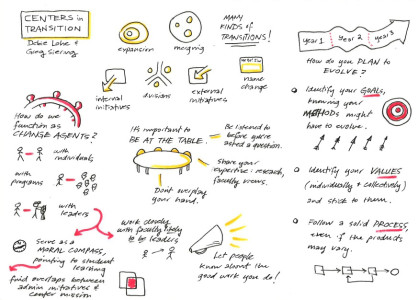 CENTERS in
TRANSITION
Debie Lohe &
Greg Siering
expansion
merging
MANY
KINDS of
TRANSITIONS!
internal
initiatives
divisions
external
initiatives
name
change
How do we
function as
CHANGE AGENTS?
with
individuals
with
programs
with
leaders
Serve as a
MORAL COMPASS,
pointing to student
learning
find overlaps between
admin initiatives &
center mission
It's important to
BE AT THE TABLE.
Be listened to
before you're
asked a question.
Share your
expertise: research,
faculty views.
Don't overplay
your hand.
Work closely
with faculty likely
to be leaders
Let people
know about the
good work you do!
year 1 year 2 year 3
How do you PLAN to
EVOLVE?
Identify your GOALS,
knowing your
METHODS might
have to evolve.
Identify your VALUES
(individually & collectively)
and stick to them.
Follow a solid PROCESS,
even if the products
may vary.